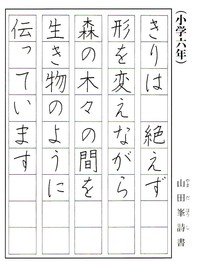 (小学六年)
山田峯詩書
やまだほうし
きりは 絶えず
形を変えながら
森の木々の間を
生き物のように
伝っています